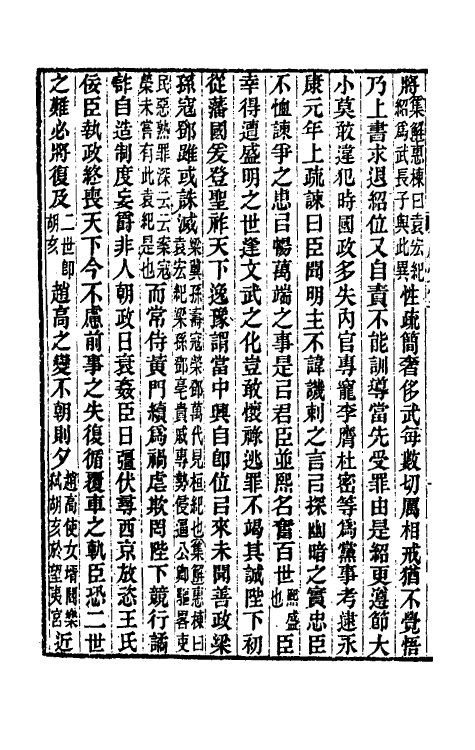 將集解惠棟曰袁宏紀紹爲武長子與此異性疏簡奢侈武每數切厲相戒猶不覺悟
乃上書求退紹位又自責不能訓導當先受罪由是紹更遵節大
小莫敢違犯時國政多失內官專寵李膺杜密等爲黨事考逮永
康元年上疏諫曰臣聞明主不諱譏刺之言㠯探幽暗之實忠臣
不恤諫爭之患㠯暢萬端之事是㠯君臣並熙名奮百世熙盛也臣
幸得遭盛明之世逢文武之化豈敢懷祿逃罪不竭其誠陛下初
從藩國爰登聖祚天下逸豫謂當中興自卽位㠯來未聞善政梁
孫寇鄧雖或誅滅梁冀孫壽寇榮鄧萬代見桓紀也集解惠棟曰袁宏紀梁孫鄧亳貴戚專勢侵逼公卿驅畧吏民惡熟罪深云云案寇榮未嘗有此袁紀是也而常侍黃門續爲禍虐欺罔陛下競行譎
詐自造制度妄爵非人朝政日衰姦臣日彊伏尋西京放恣王氏
佞臣執政終喪天下今不慮前事之失復循覆車之軌臣恐二世
之難必將復及二世卽胡亥趙高之變不朝則夕趙高使女壻閻樂弒胡亥於望夷宮近